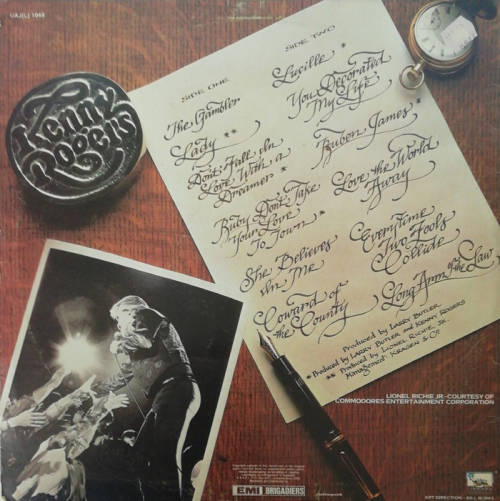 UAJ(L) 1048
Kenny
Rogers
SIDE ONE
The Gambler
Lady **
Don't Fall In
Love With a
Dreamer *
Ruby Don't Take
Your Love
To Town *
She Believes
In Me
Coward of
the County
SIDE TWO
Lucille *
You Decorated
My Life
Ruben James *
Love the World
Away
Everytime
Two Fools
Collide
Long Arm of the Law
Produced by LARRY BUTLER
* Produced by LARRY BUTLER and KENNY ROGERS
** Produced by LIONEL RICHIE, JR.
Management: KRAGEN & CO.
LIONEL RICHIE JR-COURTESY OF
COMMODORES ENTERTAINMENT CORPORATION
EMI BRIGADIERS
ART DIRECTION